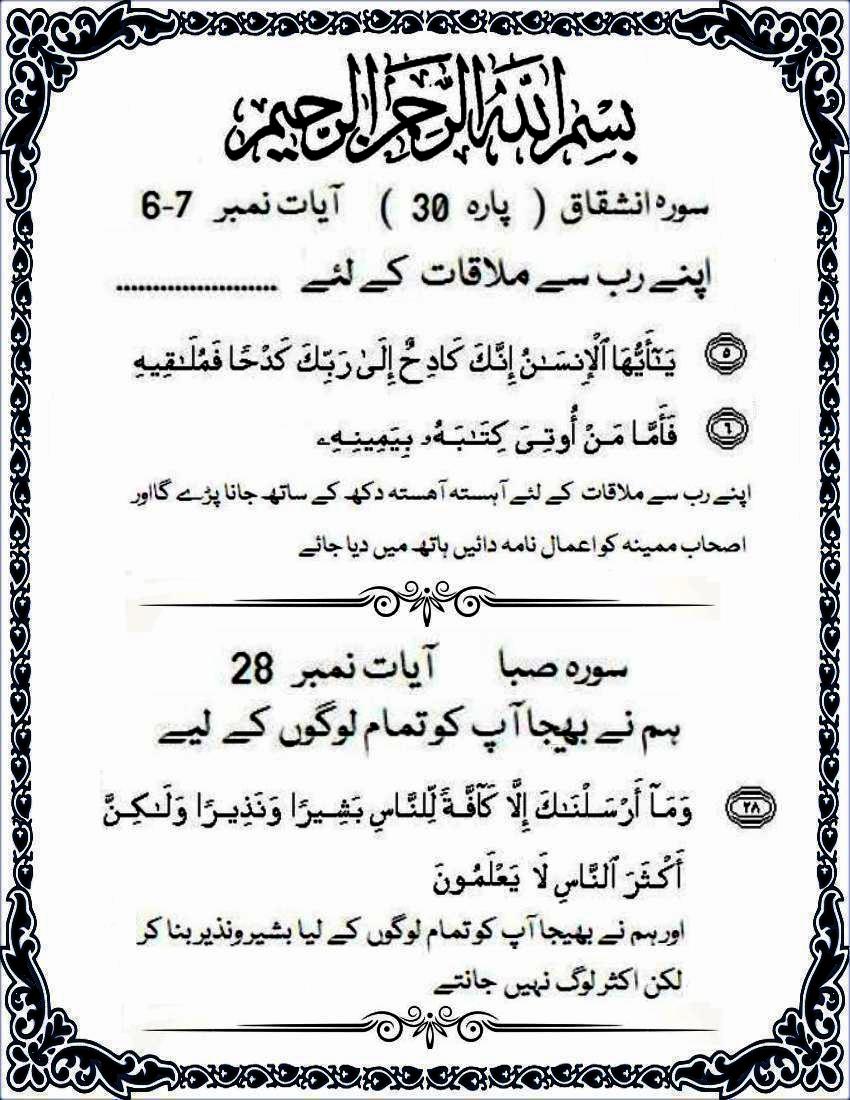 بِسْمِ اللّٰهِ الرَّحْمٰنِ الرَّحِيْمِ
سورہ انشقاق ( پارہ 30 ) آیات نمبر 7-6
اپنے رب سے ملاقات کے لئے ......................
۵ يَـٰٓأَيُّهَا ٱلْإِنسَـٰنُ إِنَّكَ كَادِحٌ إِلَىٰ رَبِّكَ كَدْحًا فَمُلَـٰقِيهِ
٦ فَأَمَّا مَنْ أُوتِىَ كِتَـٰبَهُۥ بِيَمِينِهِۦ
اپنے رب سے ملاقات کے لئے آہستہ آهسته دکھ کے ساتھ جانا پڑے گا اور
اصحاب ممینہ کو اعمال نامہ دائیں ہاتھ میں دیا جائے
سورہ صبا آیات نمبر 28
ہم نے بھیجا آپ کو تمام لوگوں کے لیے
۲۸ وَمَآ أَرْسَلْنَـٰكَ إِلَّا كَآفَّةً لِّلنَّاسِ بَشِيرًا وَنَذِيرًا وَلَـٰكِنَّ
أَكْثَرَ ٱلنَّاسِ لَا يَعْلَمُونَ
اور ہم نے بھیجا آپ کو تمام لوگوں کے لیا بشیر ونذیر بنا کر
لکن اکثر لوگ نہیں جانتے